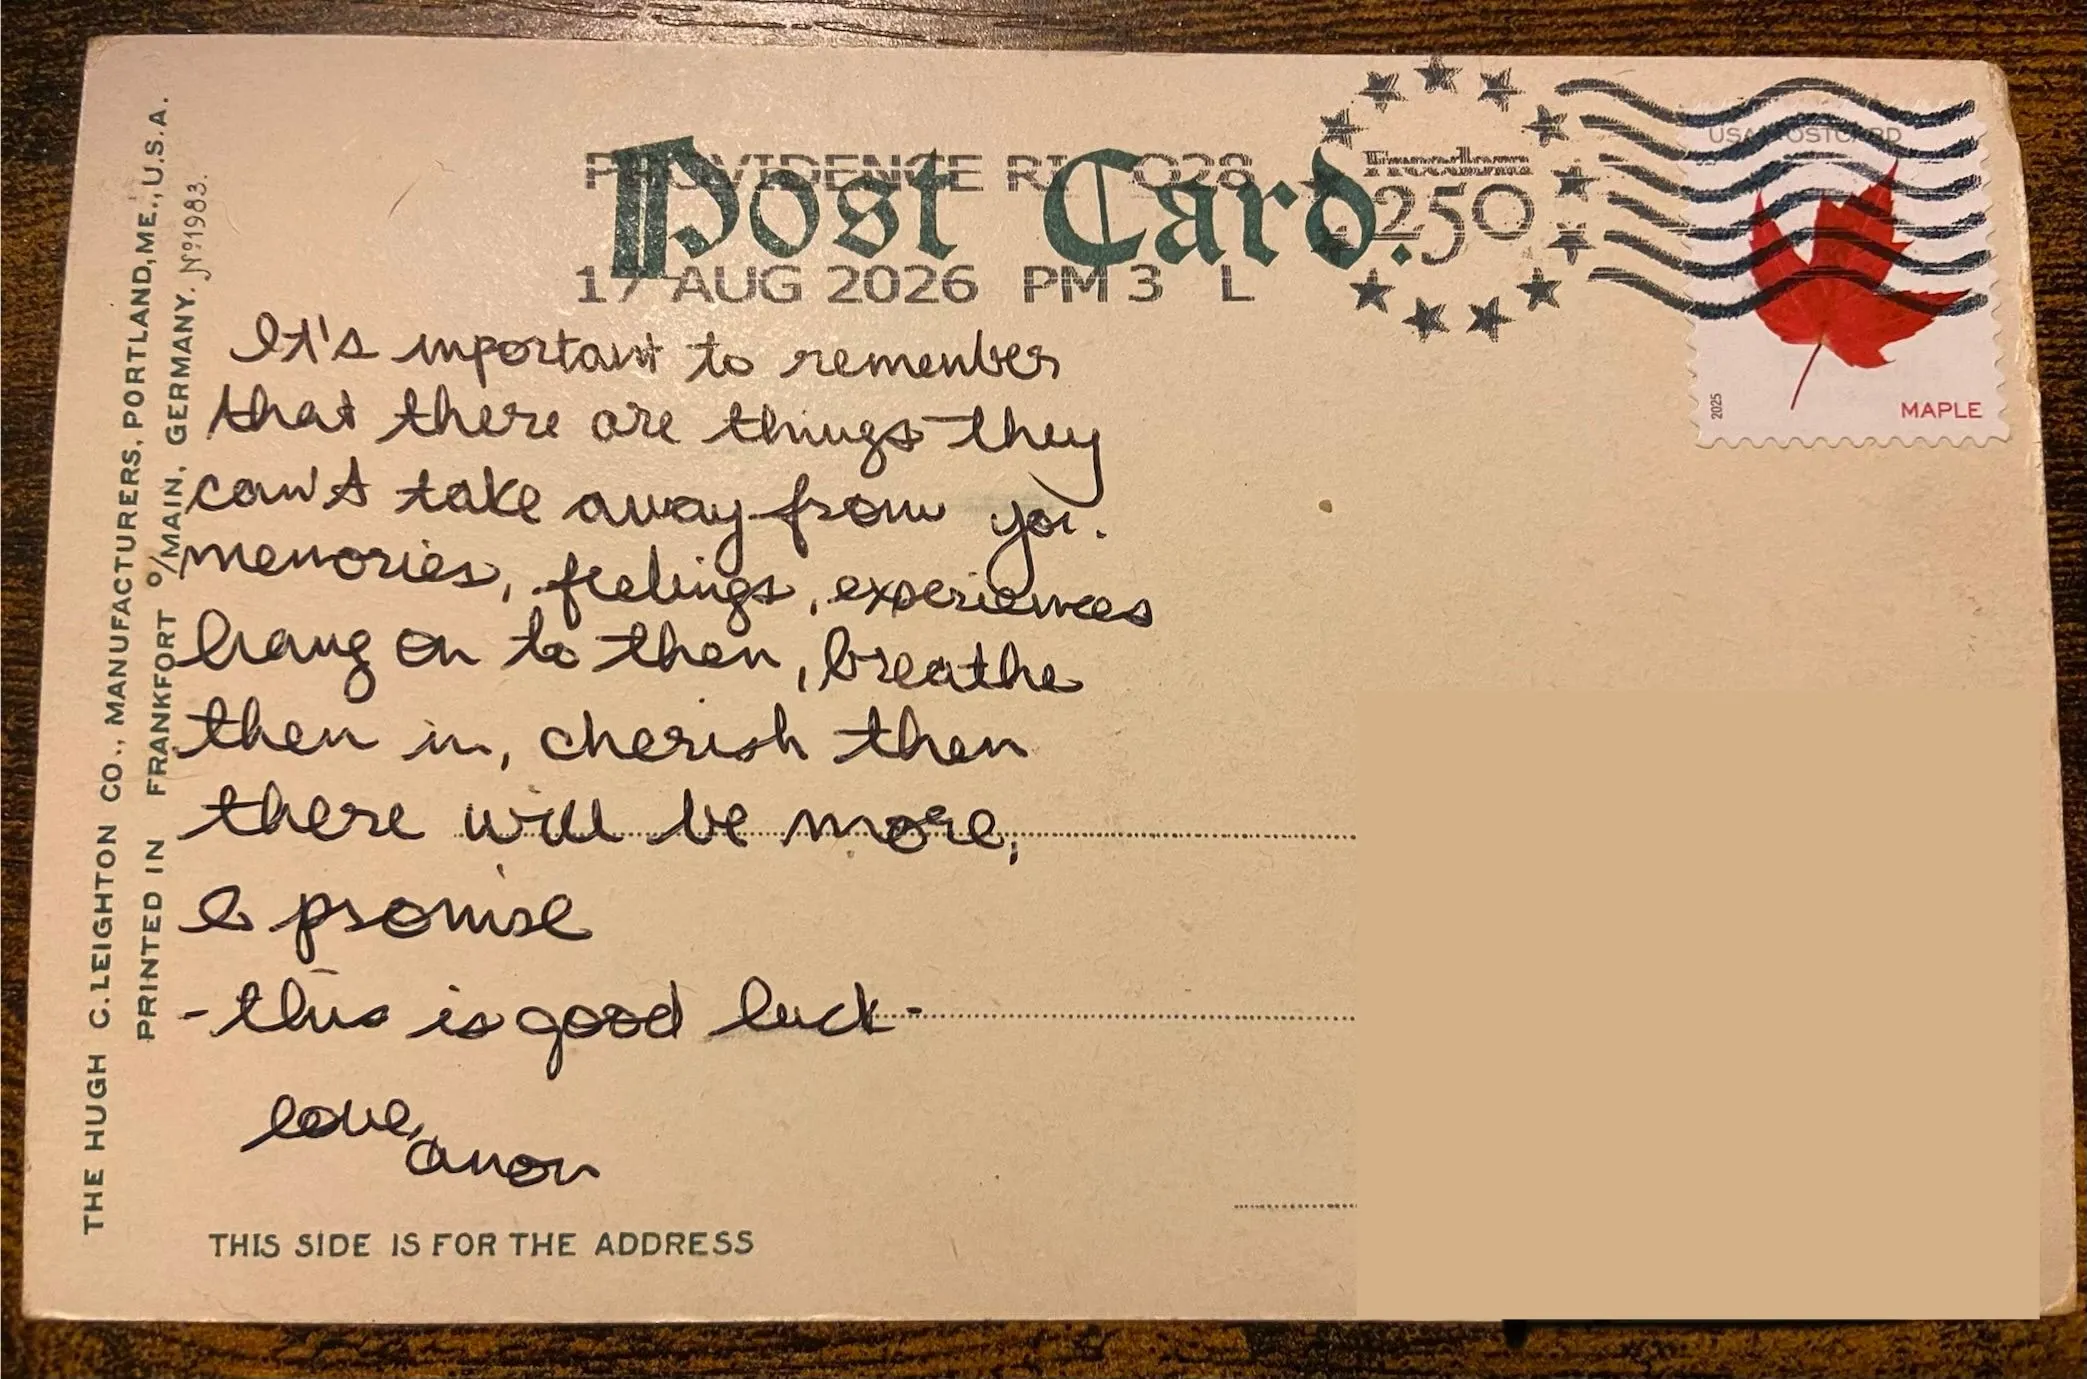 THE HUGH C. LEIGHTON CO., MANUFACTURERS, PORTLAND, ME., U.S.A.
PRINTED IN FRANKFORT o/MAIN, GERMANY. No 1983.
Post Card.
PROVIDENCE RI 028
17 AUG 2026 PM 3 L
Freedom
250
USA POSTCARD
2025
MAPLE
It's important to remember
that there are things they
can't take away from you.
memories, feelings, experiences
hang on to them, breathe
them in, cherish them
there will be more,
I promise
-this is good luck-
love,
anon
THIS SIDE IS FOR THE ADDRESS